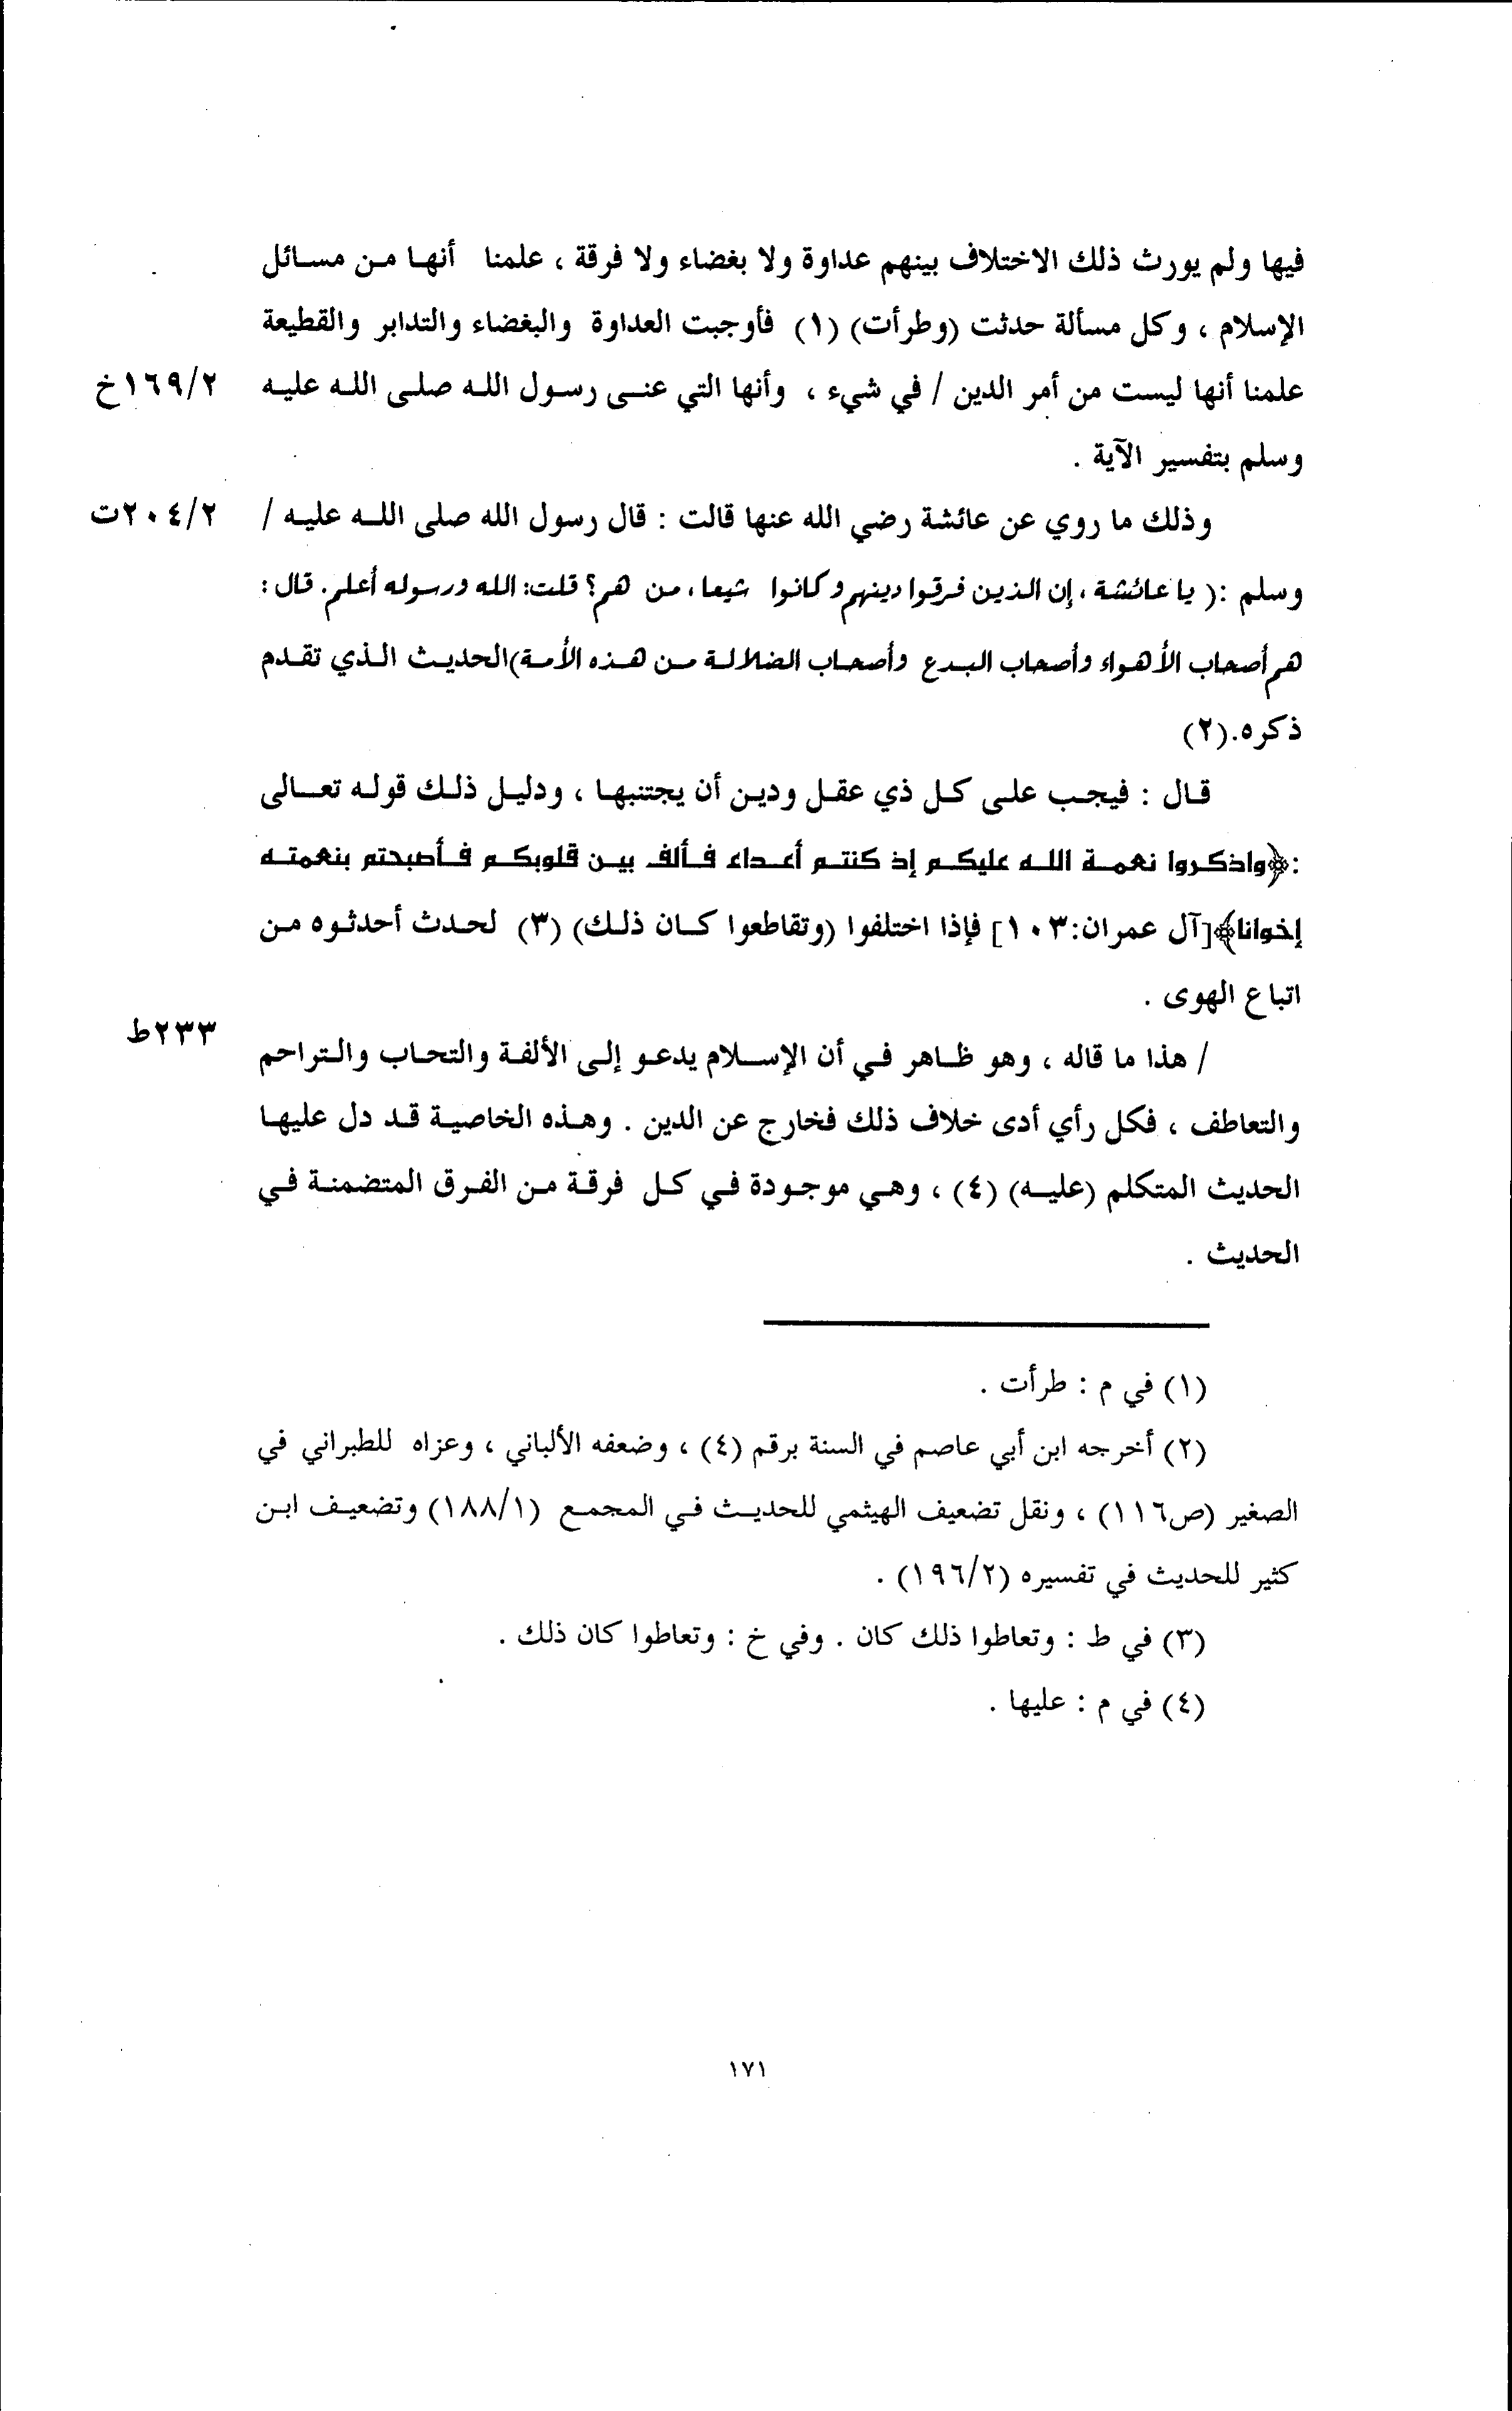 فيها ولم يورث ذلك الاختلاف بينهم عداوة ولا بغضاء ولا فرقة ، علمنا أنها من مسائل
الإسلام ، وكل مسألة حدثت (وطرأت) (١) فأوجبت العداوة والبغضاء والتدابر والقطيعة
علمنا أنها ليست من أمر الدين / في شيء ، وأنها التي عنى رسول الله صلى الله عليه ١٦٩/٢خ
وسلم بتفسير الآية .
وذلك ما روي عن عائشة رضي الله عنها قالت : قال رسول الله صلى الله عليه / ٢٠٤/٢ت
وسلم :( يا عائشة ، إن الذين فرقوا دينهم وكانوا شيعا ، من هم؟ قلت: الله ورسوله أعلم. قال :
هم أصحاب الأهواء وأصحاب البدع وأصحاب الضلالة من هذه الأمة)الحديث الذي تقدم
ذكره.(٢)
قال : فيجب على كل ذي عقل ودين أن يجتنبها ، ودليل ذلك قوله تعالى
:﴿واذكروا نعمة الله عليكم إذ كنتم أعداء فألف بين قلوبكم فأصبحتم بنعمته
إخوانا﴾[آل عمران:١٠٣] فإذا اختلفوا (وتقاطعوا كان ذلك) (٣) لحدث أحدثوه من
اتباع الهوى .
/ هذا ما قاله ، وهو ظاهر في أن الإسلام يدعو إلى الألفة والتحاب والتراحم ٢٣٣ط
والتعاطف ، فكل رأي أدى خلاف ذلك فخارج عن الدين . وهذه الخاصية قد دل عليها
الحديث المتكلم (عليه) (٤) ، وهي موجودة في كل فرقة من الفرق المتضمنة في
الحديث .
(١) في م : طرأت .
(٢) أخرجه ابن أبي عاصم في السنة برقم (٤) ، وضعفه الألباني ، وعزاه للطبراني في
الصغير (ص١١٦) ، ونقل تضعيف الهيثمي للحديث في المجمع (١٨٨/١) وتضعيف ابن
كثير للحديث في تفسيره (١٩٦/٢) .
(٣) في ط : وتعاطوا ذلك كان . وفي خ : وتعاطوا كان ذلك .
(٤) في م : عليها .
١٧١